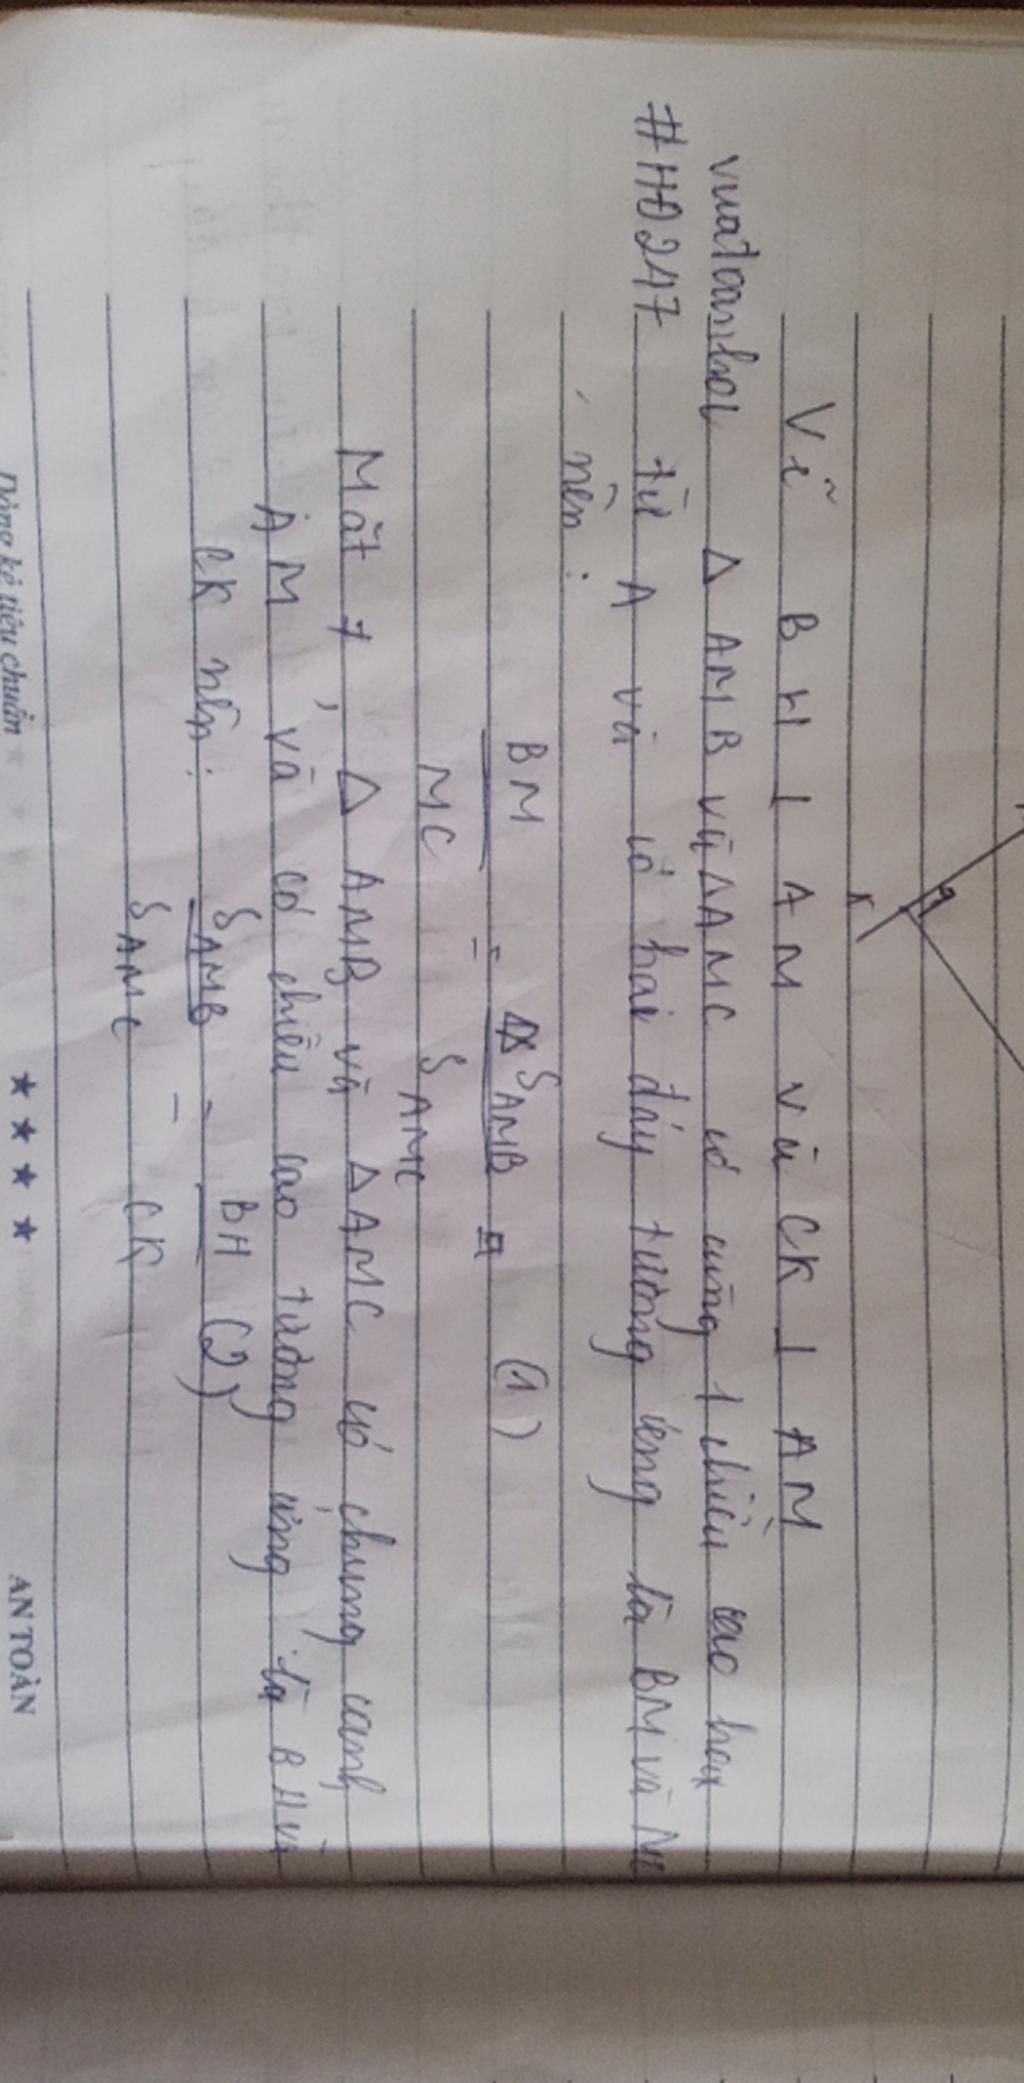 K
Vẽ BH ⊥ AM và CK ⊥ AM
vuatoanhoc Δ AMB và Δ AMC có cùng 1 chiều cao hạ
#HĐ247 từ A và có hai đáy tương ứng là BM và MC
nên:
BM = S AMB (1)
MC S AMC
Mặt ≠, Δ AMB và Δ AMC có chung cạnh
AM và có chiều cao tương ứng là BH và
CK nên: S AMB = BH (2)
S AMC CK
Dòng kẻ tiêu chuẩn ★ ★ ★ ★ AN TOÀN